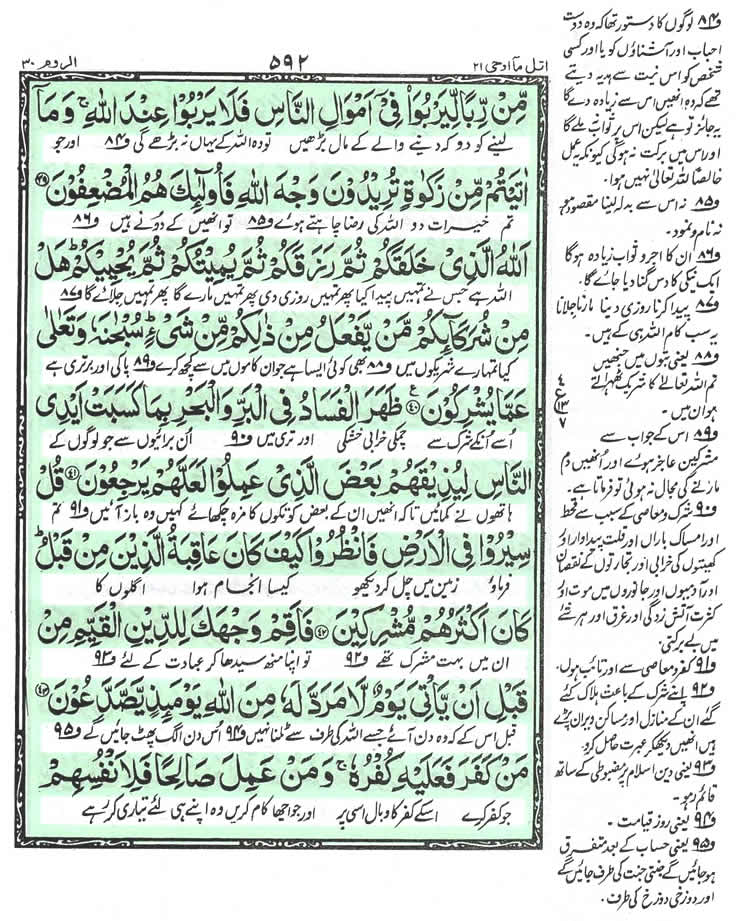 اتل ما اوحی ۲۱
۵۹۲
الروم ۳۰
مِّنْ رِّبًا لِّيَرْبُوَا۟ فِيْۤ اَمْوَالِ النَّاسِ فَلَا يَرْبُوْا عِنْدَ اللّٰهِ ۚ وَ مَاۤ
لینے کو دو کہ دینے والے کے مال بڑھیں تو وہ اللہ کے یہاں نہ بڑھے گی ف۸۴ اور جو
اٰتَيْتُمْ مِّنْ زَكٰوةٍ تُرِيْدُوْنَ وَجْهَ اللّٰهِ فَاُولٰٓىِٕكَ هُمُ الْمُضْعِفُوْنَ ۳۹
تم خیرات دو اللہ کی رضا چاہتے ہوئے ف۸۵ تو انھیں کے دونے ہیں ف۸۶
اَللّٰهُ الَّذِيْ خَلَقَكُمْ ثُمَّ رَزَقَكُمْ ثُمَّ يُمِيْتُكُمْ ثُمَّ يُحْيِيْكُمْ ؕ هَلْ
اللہ ہے جس نے تمہیں پیدا کیا پھر تمہیں روزی دی پھر تمہیں مارے گا پھر تمہیں جلائے گا ف۸۷
مِنْ شُرَكَآىِٕكُمْ مَّنْ يَّفْعَلُ مِنْ ذٰلِكُمْ مِّنْ شَيْءٍ ؕ سُبْحٰنَهٗ وَتَعٰلٰى
کیا تمہارے شریکوں میں ف۸۸ بھی کوئی ایسا ہے جو ان کاموں میں سے کچھ کرے ف۸۹ پاکی اور برتری ہے
عَمَّا يُشْرِكُوْنَ ۴۰ ع ظَهَرَ الْفَسَادُ فِي الْبَرِّ وَالْبَحْرِ بِمَا كَسَبَتْ اَيْدِي
اُسے انکے شرک سے چمکی خرابی خشکی اور تری میں ف۹۰ اُن برائیوں سے جو لوگوں کے
النَّاسِ لِيُذِيْقَهُمْ بَعْضَ الَّذِيْ عَمِلُوْا لَعَلَّهُمْ يَرْجِعُوْنَ ۴۱ قُلْ
ہاتھوں نے کمائیں تاکہ انھیں ان کے بعض کوتکوں کا مزہ چکھائے کہیں وہ باز آئیں ف۹۱ تم
سِيْرُوْا فِي الْاَرْضِ فَانْظُرُوْا كَيْفَ كَانَ عَاقِبَةُ الَّذِيْنَ مِنْ قَبْلُ ؕ
فرماؤ زمین میں چل کر دیکھو کیسا انجام ہوا اگلوں کا
كَانَ اَكْثَرُهُمْ مُّشْرِكِيْنَ ۴۲ فَاَقِمْ وَجْهَكَ لِلدِّيْنِ الْقَيِّمِ مِنْ
ان میں بہت مشرک تھے ف۹۲ تو اپنا منہ سیدھا کر عبادت کے لئے ف۹۳
قَبْلِ اَنْ يَّاْتِيَ يَوْمٌ لَّا مَرَدَّ لَهٗ مِنَ اللّٰهِ يَوْمَىِٕذٍ يَّصَّدَّعُوْنَ ۴۳
قبل اس کے کہ وہ دن آئے جسے اللہ کی طرف سے ٹلنا نہیں ف۹۴ اُس دن الگ پھٹ جائیں گے ف۹۵
مَنْ كَفَرَ فَعَلَيْهِ كُفْرُهٗ ۚ وَمَنْ عَمِلَ صَالِحًا فَلِاَنْفُسِهِمْ
جو کفر کرے اسکے کفر کا وبال اسی پر اور جو اچھا کام کریں وہ اپنے ہی لئے تیاری کر رہے
ف۸۴ لوگوں کا دستور تھا کہ وہ دوست
احباب اور آشناؤں کو یا اور کسی
شخص کو اس نیت سے ہدیہ دیتے
تھے کہ وہ انھیں اس سے زیادہ دے گا
یہ جائز تو ہے لیکن اس پر ثواب نہ ملے گا
اور اس میں برکت نہ ہوگی کیونکہ یہ عمل
خالصاً للہ تعالیٰ نہیں ہوا۔
ف۸۵ نہ اس سے بدلہ لینا مقصود ہو
نہ نام و نمود۔
ف۸۶ ان کا اجر و ثواب زیادہ ہوگا
ایک نیکی کا دس گنا دیا جائے گا۔
ف۸۷ پیدا کرنا روزی دینا مارنا جلانا
یہ سب کام اللہ ہی کے ہیں۔
ف۸۸ یعنی بتوں میں جنھیں
تم اللہ تعالیٰ کا شریک ٹھہراتے
ہو ان میں۔
۴
ع
۱۳
۷
ف۸۹ اس کے جواب سے
مشرکین عاجز ہوئے اور اُنھیں دم
مارنے کی مجال نہ ہوئی تو فرماتا ہے۔
ف۹۰ شرک و معاصی کے سبب سے قحط
اور امساک باراں اور قلت پیداوار اور
کھیتوں کی خرابی اور تجارتوں کے نقصان
اور آدمیوں اور جانوروں میں موت اور
کثرت آتش زدگی اور غرق اور ہر شئے
میں بے برکتی۔
ف۹۱ کفر و معاصی سے اور تائب ہوں۔
ف۹۲ اپنے شرک کے باعث ہلاک کئے
گئے ان کے منازل اور مساکن ویران پڑے
ہیں انھیں دیکھکر عبرت حاصل کرو۔
ف۹۳ یعنی دین اسلام پر مضبوطی کے ساتھ
قائم رہو۔
ف۹۴ یعنی روز قیامت۔
ف۹۵ یعنی حساب کے بعد متفرق
ہو جائیں گے جنتی جنت کی طرف جائیں گے
اور دوزخی دوزخ کی طرف۔